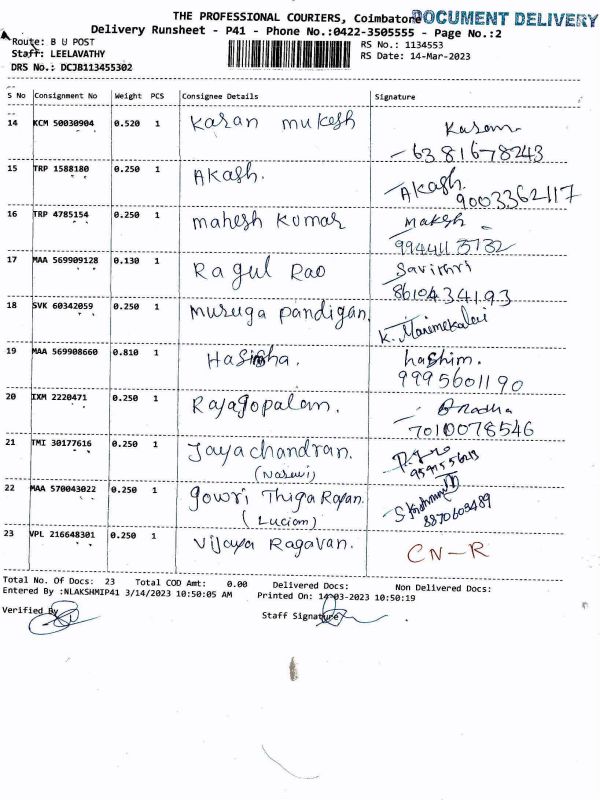 THE PROFESSIONAL COURIERS, Coimbatore DOCUMENT DELIVERY
Delivery Runsheet - P41 - Phone No.:0422-3505555 - Page No.:2
Route: B U POST RS No.: 1134553
Staff: LEELAVATHY RS Date: 14-Mar-2023
DRS No.: DCJB113455302
S No Consignment No Weight PCS Consignee Details Signature
14 KCM 50030904 0.520 1 Karan mukesh
6381678243
15 TRP 1588180 0.250 1 Akash. Akash.
9003362117
16 TRP 4785154 0.250 1 mahesh kumar
17 MAA 569909128 0.130 1 Ragul Rao Savithri
8610434193
18 SVK 60342059 0.250 1 Muruga pandigan. K. Manimekalai
19 MAA 569908660 0.810 1 hashim.
9995601190
20 IXM 2220471 0.250 1 Rajagopalam.
7010078546
21 TMI 30177616 0.250 1 Jayachandran.
22 MAA 570043022 0.250 1 gowri
8870603489
23 VPL 216648301 0.250 1 Vijaya Ragavan. CN-R
Total No. Of Docs: 23 Total COD Amt: 0.00 Delivered Docs: Non Delivered Docs:
Entered By :NLAKSHMIP41 3/14/2023 10:50:05 AM Printed On: 14-03-2023 10:50:19
Verified By Staff Signature